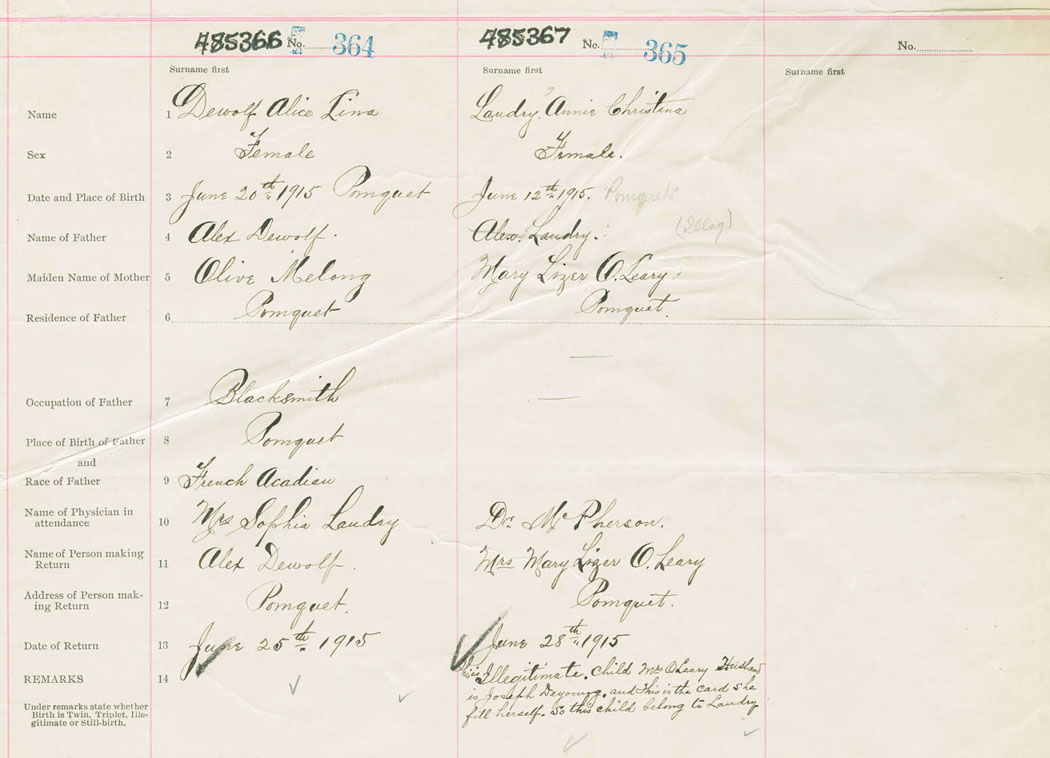 485366 No. 364 485367 No. 365 No.
Surname first Surname first Surname first
Name 1 Dewolf Alice Lina Landry, Annie Christina
Sex 2 Female Female.
Date and Place of Birth 3 June 20th 1915 Pomquet June 12th 1915. Pomquet
(Illeg)
Name of Father 4 Alex Dewolf. Alex. Landry.
Maiden Name of Mother 5 Olive Melong Mary Lizer O.Leary
Residence of Father 6 Pomquet Pomquet.
Occupation of Father 7 Blacksmith —
Place of Birth of Father 8 Pomquet
and
Race of Father 9 French Acadian
Name of Physician in
attendance 10 Mrs Sophia Landry Dr. McPherson.
Name of Person making
Return 11 Alex Dewolf. Mrs Mary Lizer O.Leary
Address of Person mak-
ing Return 12 Pomquet. Pomquet.
Date of Return 13 June 25th 1915 June 28th 1915
REMARKS 14 This is Illegitimate. Child Mrs O Leary Husband
is Joseph Deyoung. and this is the card she
fill herself. So this child belong to Landry
Under remarks state whether
Birth is Twin, Triplet, Ille-
gitimate or Still-birth.